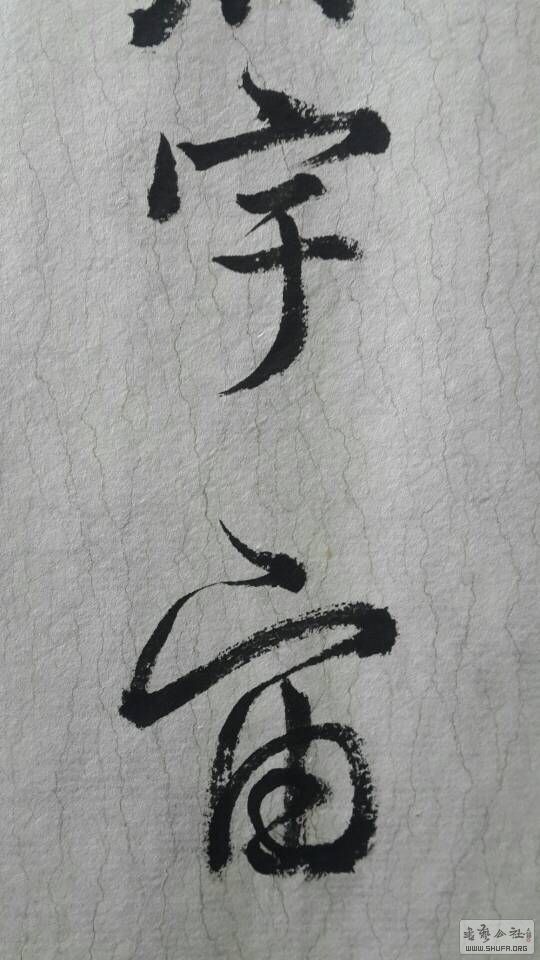 宇宙
书艺公社
WWW.SHUFA.ORG